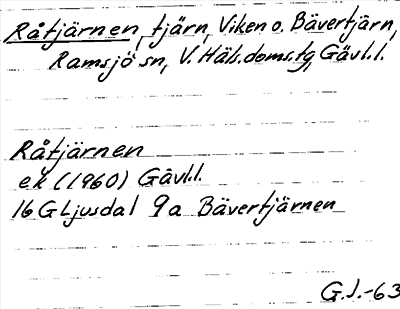 Råtjärnen, tjärn, Viken o. Bävertjärn,
Ramsjö sn, V. Häls. doms.tg, Gävl.l.
Råtjärnen
ek (1960) Gävl.l.
16G Ljusdal 9a Bävertjärnen
G.J.-63